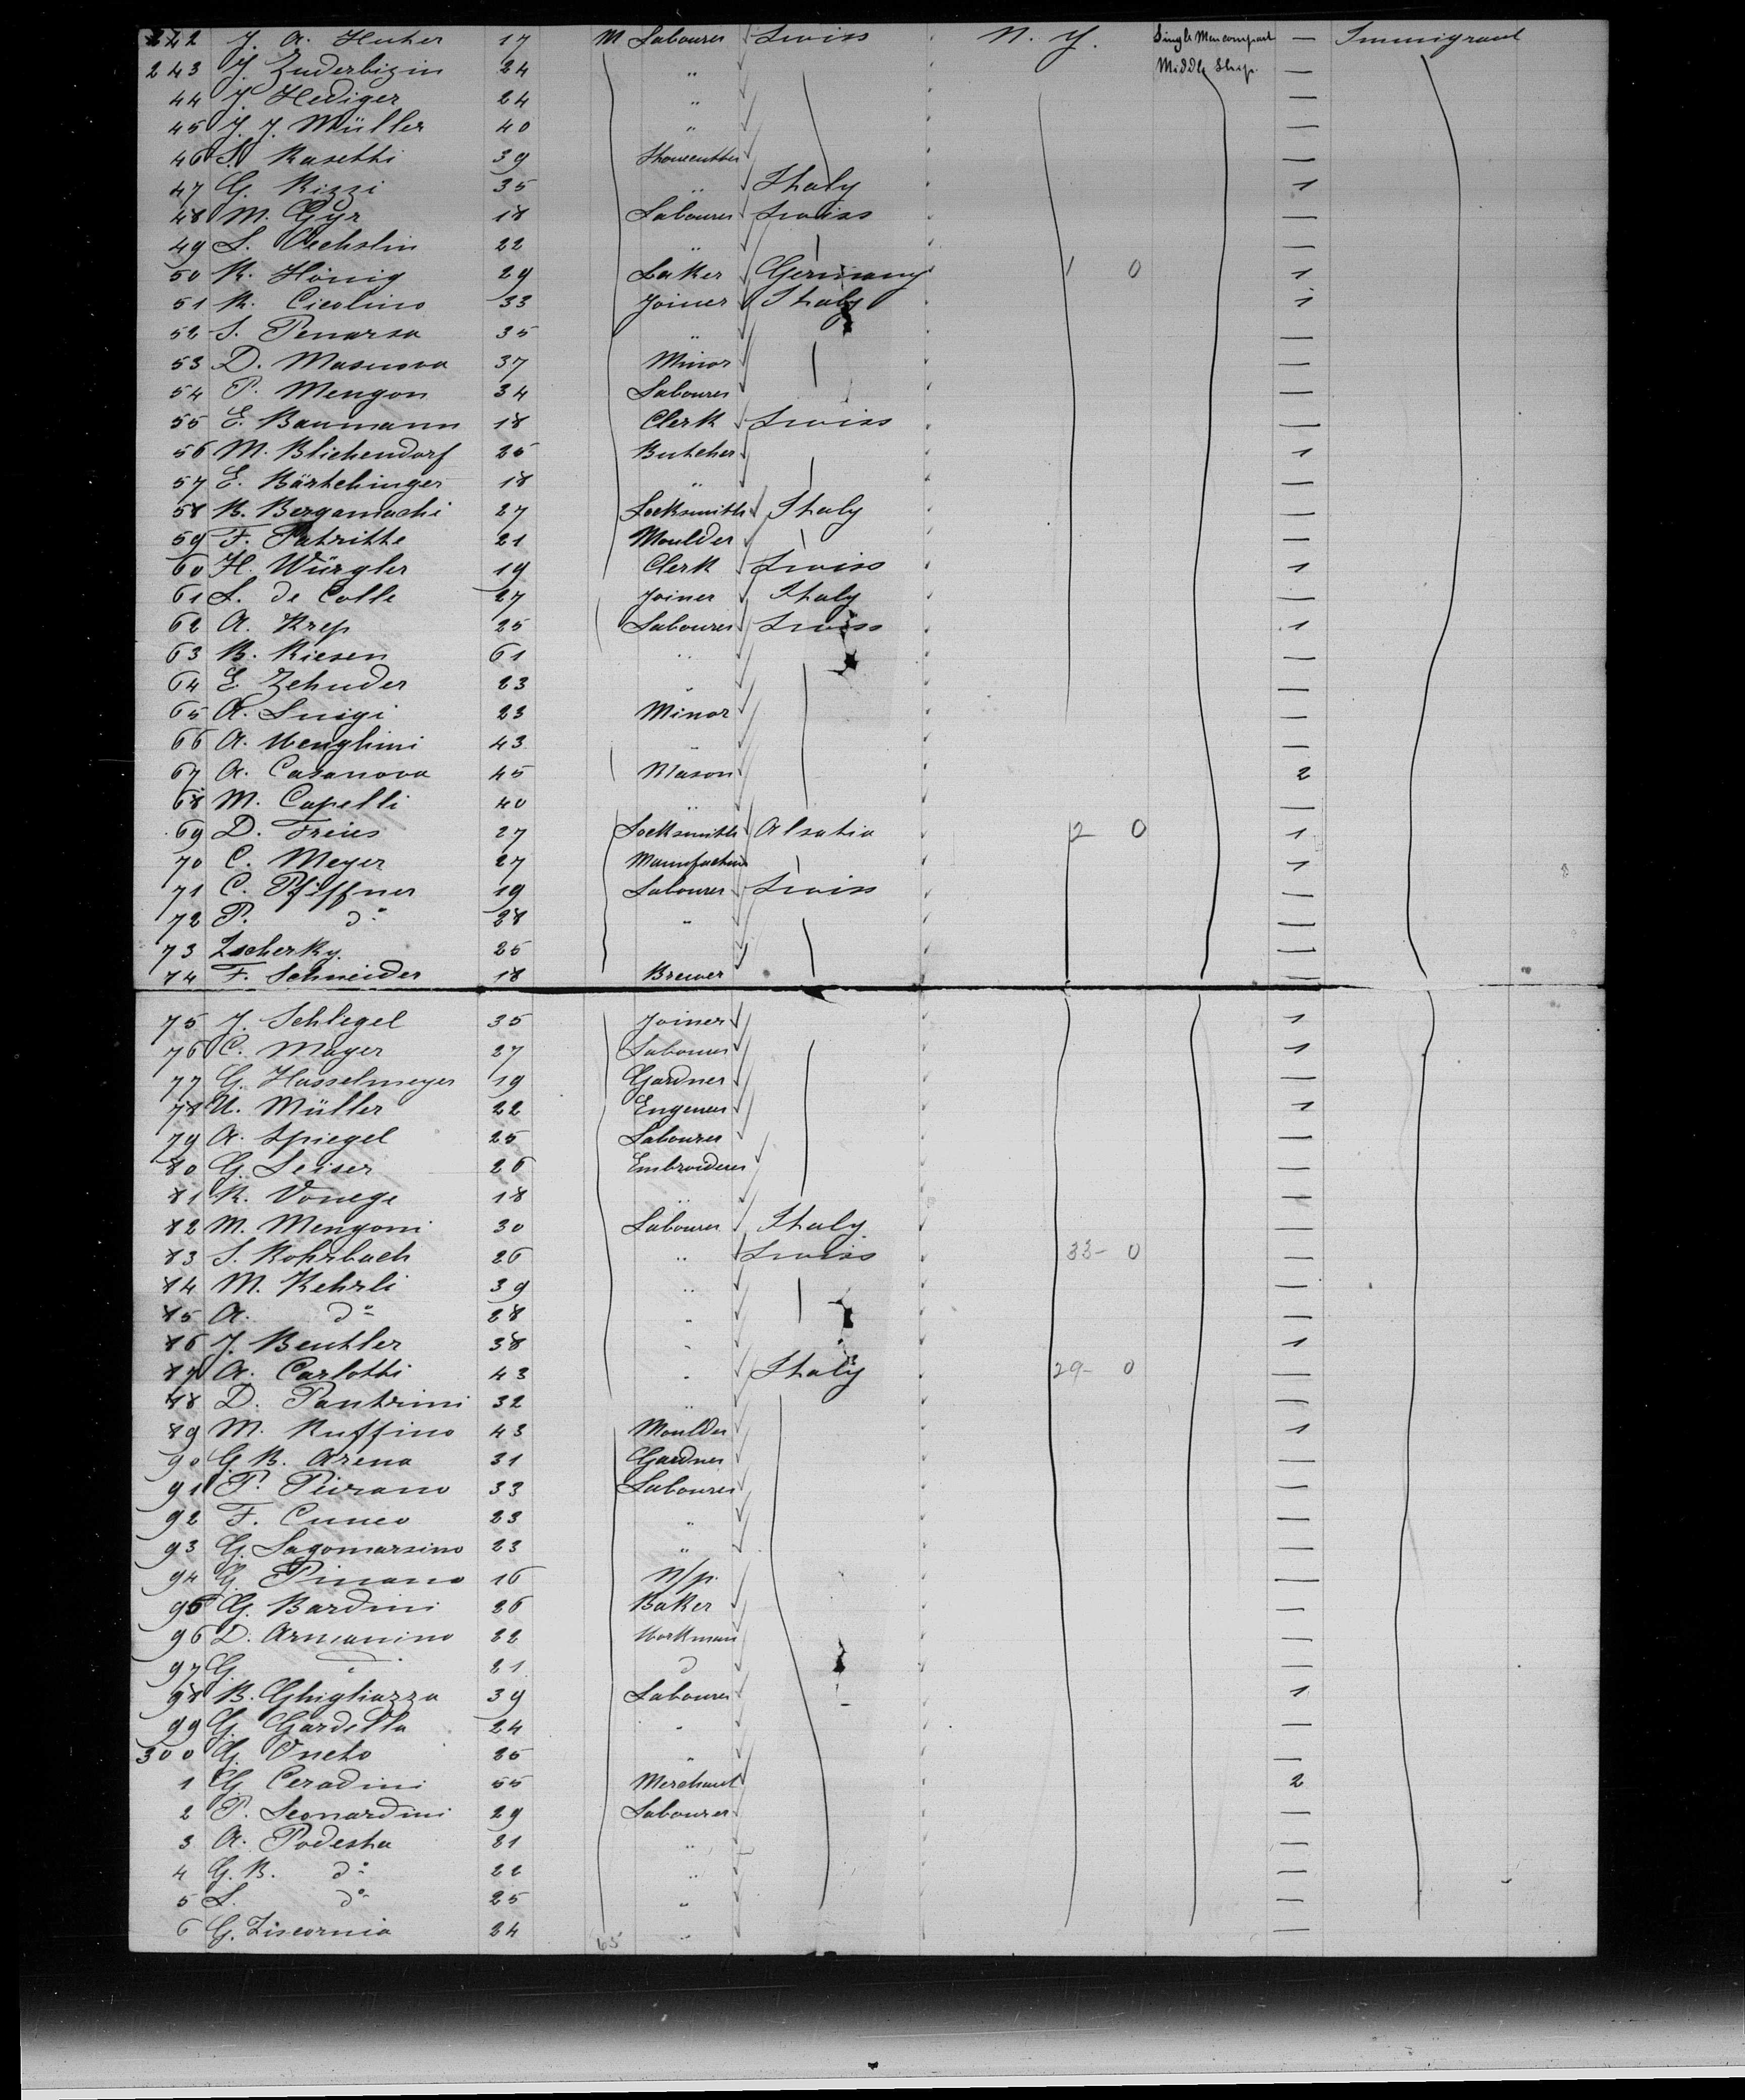 242 J. A. Huher 17 M Labourer Swiss N. Y. Single Men compart — Immigrant
243 J. Zuderbizin 24 " Middle Ship. —
44 J. Hediger 24 " —
45 J. J. Müller 40 " —
46 S. Rasetti 39 Stonecutter —
47 G. Rizzi 35 " Italy 1
48 M. Gyr 18 Labourer Swiss —
49 S. Oechslin 22 " —
50 R. Hönig 29 Baker Germany 1 0 1
51 R. Cicolino 33 Joiner Italy 1
52 S. Penarsa 35 " —
53 D. Masnova 37 Minor —
54 P. Mengon 34 Labourer —
55 E. Baumann 18 Clerk Swiss —
56 M. Blichendorf 25 Butcher 1
57 E. Bärtchinger 18 " —
58 B. Bergamachi 27 Locksmith Italy —
59 F. Patritte 21 Moulder —
60 H. Würgler 19 Clerk Swiss 1
61 L. de Colle 27 Joiner Italy —
62 A. Krep 25 Labourer Swiss 1
63 B. Riesen 61 " —
64 E. Zehnder 23 " —
65 A. Luigi 23 Minor —
66 A. Menghini 43 " —
67 A. Casanova 45 Mason 2
68 M. Capelli 40 " —
69 D. Freies 27 Locksmith Alsatia 2 0 1
70 C. Meyer 27 1
71 C. Pfiffner 19 Labourer Swiss —
72 P. do 28 " —
73 Zscherky. 25 —
74 F. Schneider 18 Brewer —
75 J. Schlegel 35 Joiner 1
76 C. Mayer 27 Labourer 1
77 G. Hasselmeyer 19 Gardner —
78 U. Müller 22 Engeneer 1
79 A. Spiegel 25 Labourer —
80 G. Leiser 26 Embroiderer —
81 R. Vonege 18 " —
82 M. Mengoni 30 Labourer Italy —
83 S. Rohrbach 26 " Swiss 33- 0 —
84 M. Kehrli 39 " —
85 A. do 28 " —
86 J. Beutler 38 " 1
87 A. Carlotti 43 " Italy 29- 0 —
88 D. Pantrini 32 " —
89 M. Ruffino 43 Moulder 1
90 G. B. Arena 31 Gardner —
91 P. Peirano 33 Labourer —
92 F. Cuneo 23 " —
93 G. Lagomarsino 23 " —
94 G. Pinano 16 n/p. —
95 G. Bardini 26 Baker —
96 D. Armanino 22 Workman —
97 G. do 21 do —
98 B. Ghigliazza 39 Labourer 1
99 G. Gardella 24 " —
300 G. Oneto 25 " —
1 G. Ceradini 55 Merchant 2
2 P. Leonardini 29 Labourer —
3 A. Podesta 21 " —
4 G. B. do 22 " —
5 L. do 25 " —
6 G. Liscornia 24 65 " —